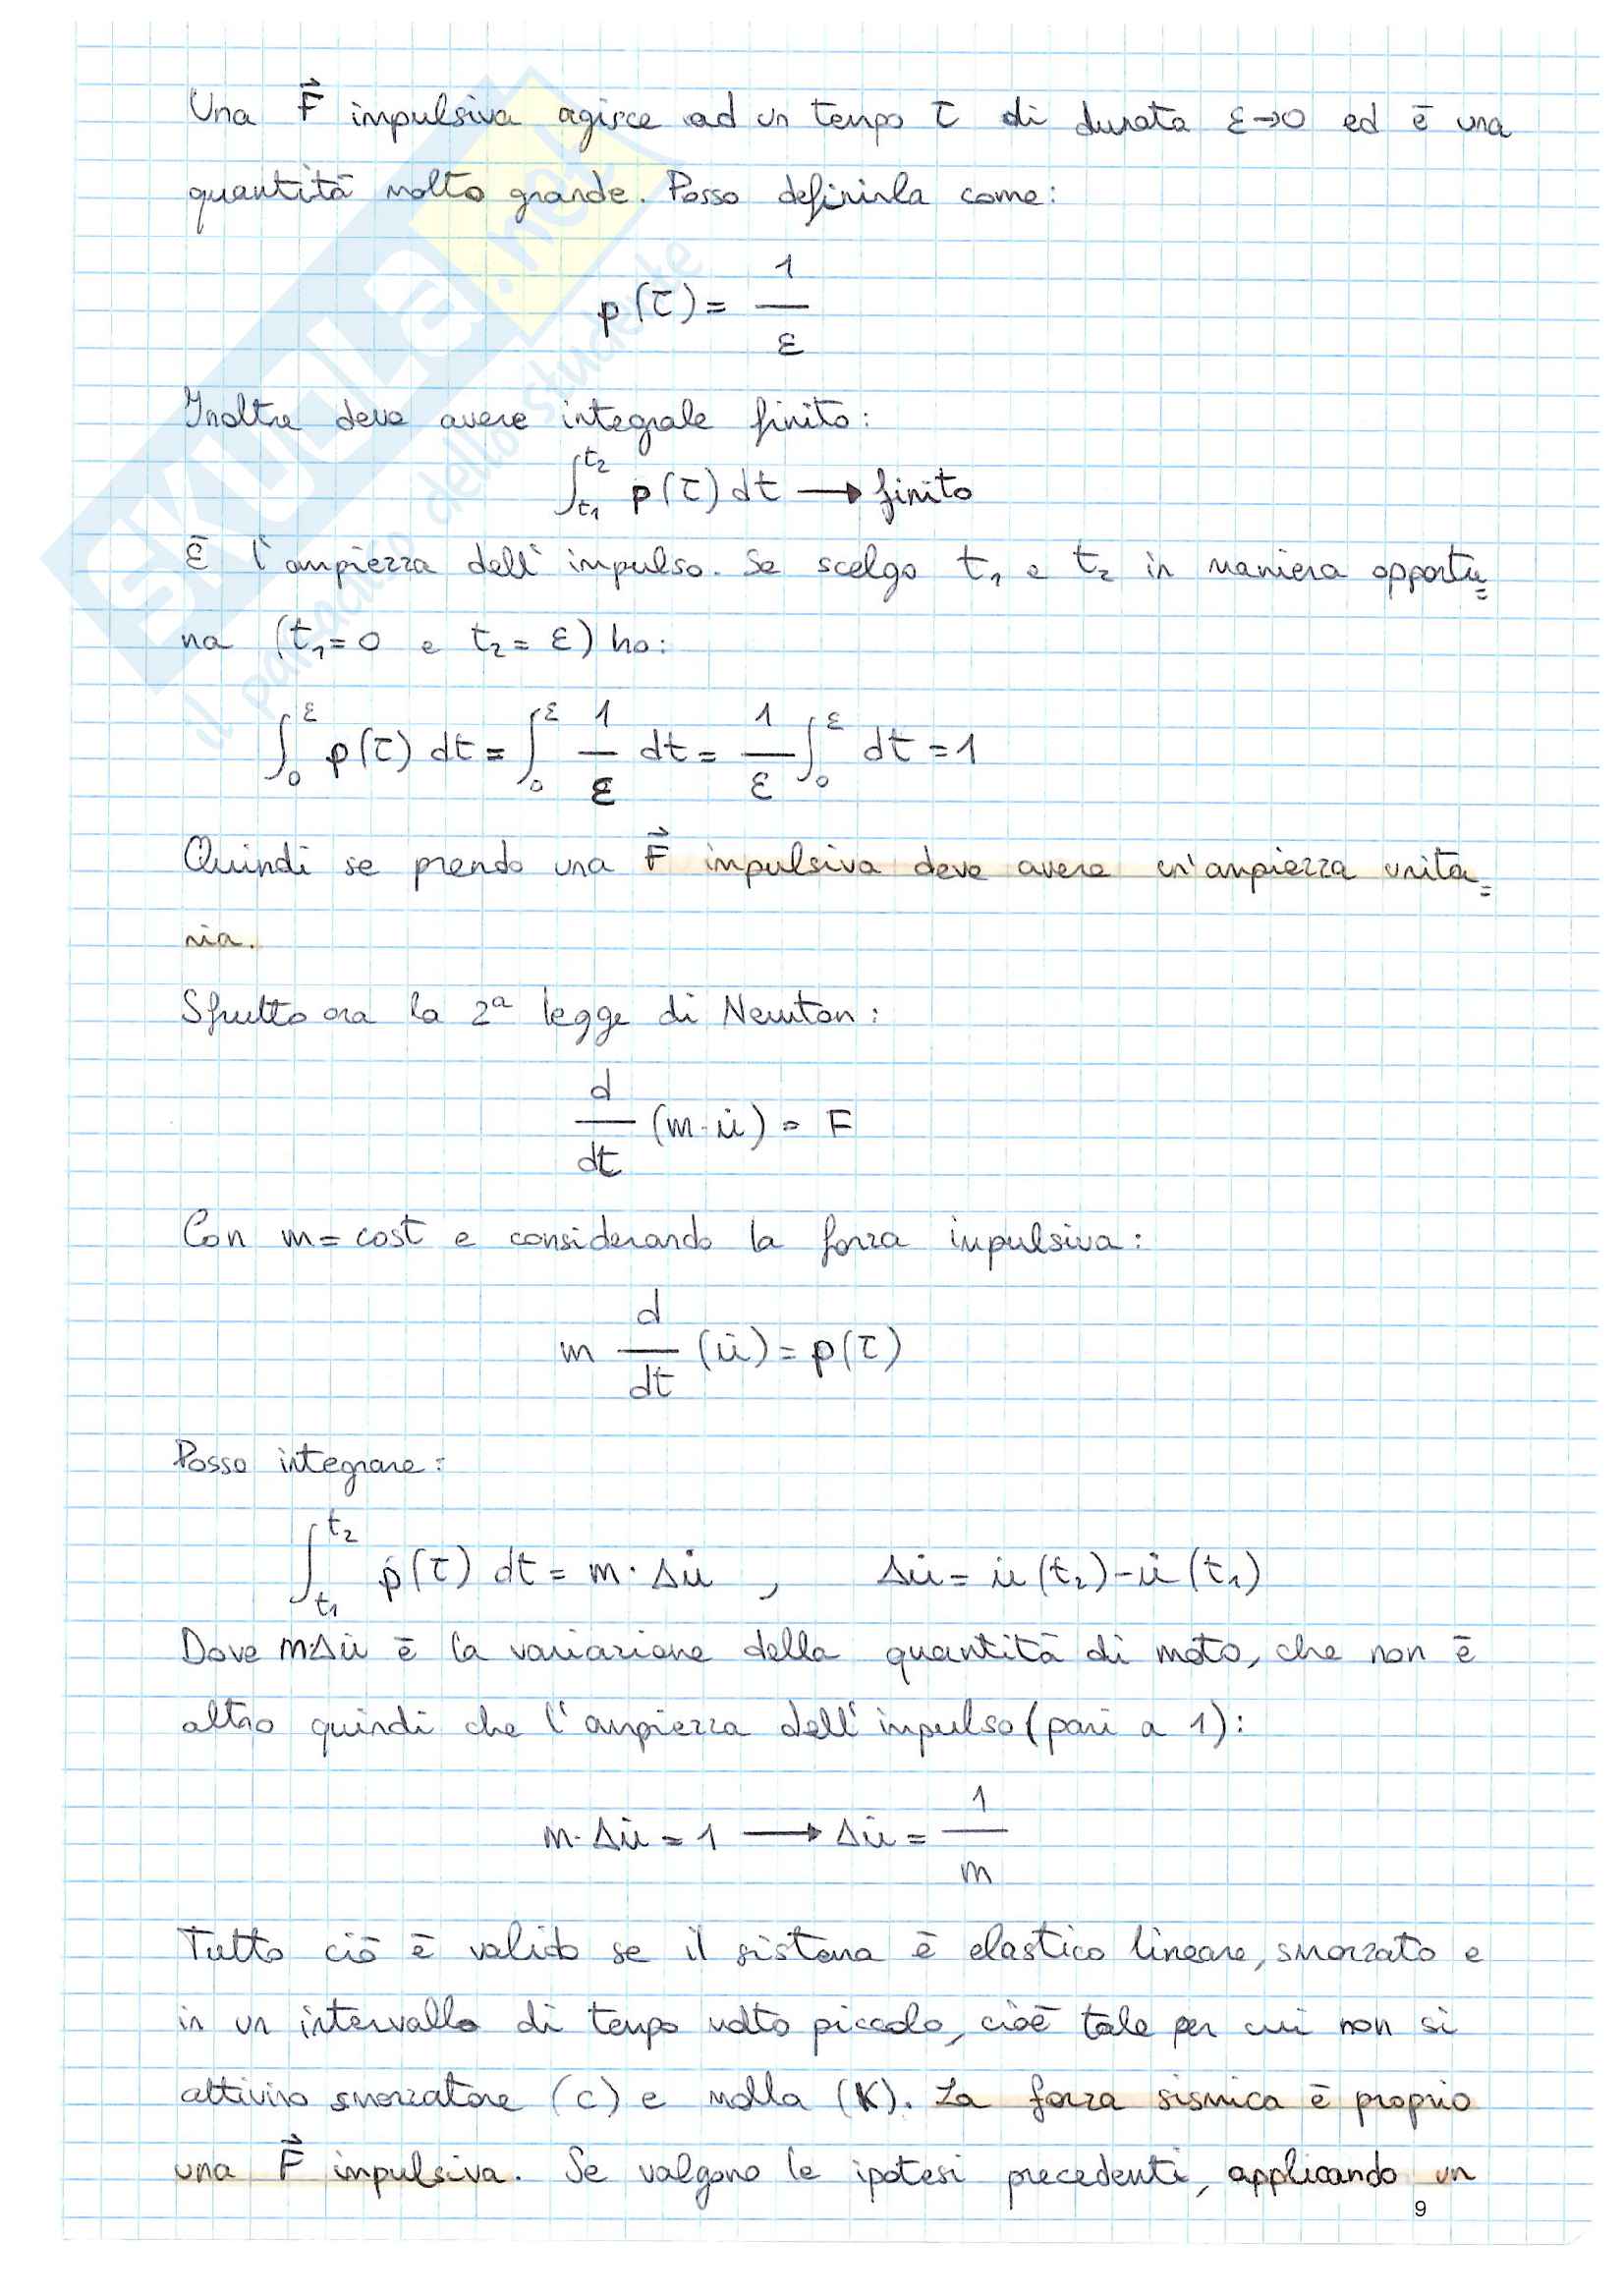 Una F⃗ impulsiva agisce ad un tempo τ di durata ε→0 ed è una
quantità molto grande. Posso definirla come:
p(τ) = 1/ε
Inoltre deve avere integrale finito:
∫_{t₁}^{t₂} p(τ) dt ⟶ finito
È l'ampiezza dell'impulso. Se scelgo t₁ e t₂ in maniera opportu=
na (t₁=0 e t₂=ε) ho:
∫₀^ε p(τ) dt = ∫₀^ε 1/ε dt = 1/ε ∫₀^ε dt = 1
Quindi se prendo una F⃗ impulsiva deve avere un'ampiezza unita=
ria.
Sfrutto ora la 2ª legge di Newton:
d/dt (m·u̇) = F
Con m=cost e considerando la forza impulsiva:
m d/dt (u̇) = p(τ)
Posso integrare:
∫_{t₁}^{t₂} p(τ) dt = m·Δu̇ , Δu̇ = u̇(t₂)-u̇(t₁)
Dove m·Δu̇ è la variazione della quantità di moto, che non è
altro quindi che l'ampiezza dell'impulso (pari a 1):
m·Δu̇ = 1 ⟶ Δu̇ = 1/m
Tutto ciò è valido se il sistema è elastico lineare, smorzato e
in un intervallo di tempo molto piccolo, cioè tale per cui non si
attivino smorzatore (c) e molla (K). La forza sismica è proprio
una F⃗ impulsiva. Se valgono le ipotesi precedenti, applicando un
9
SKUOLA.net
il paradiso dello studente